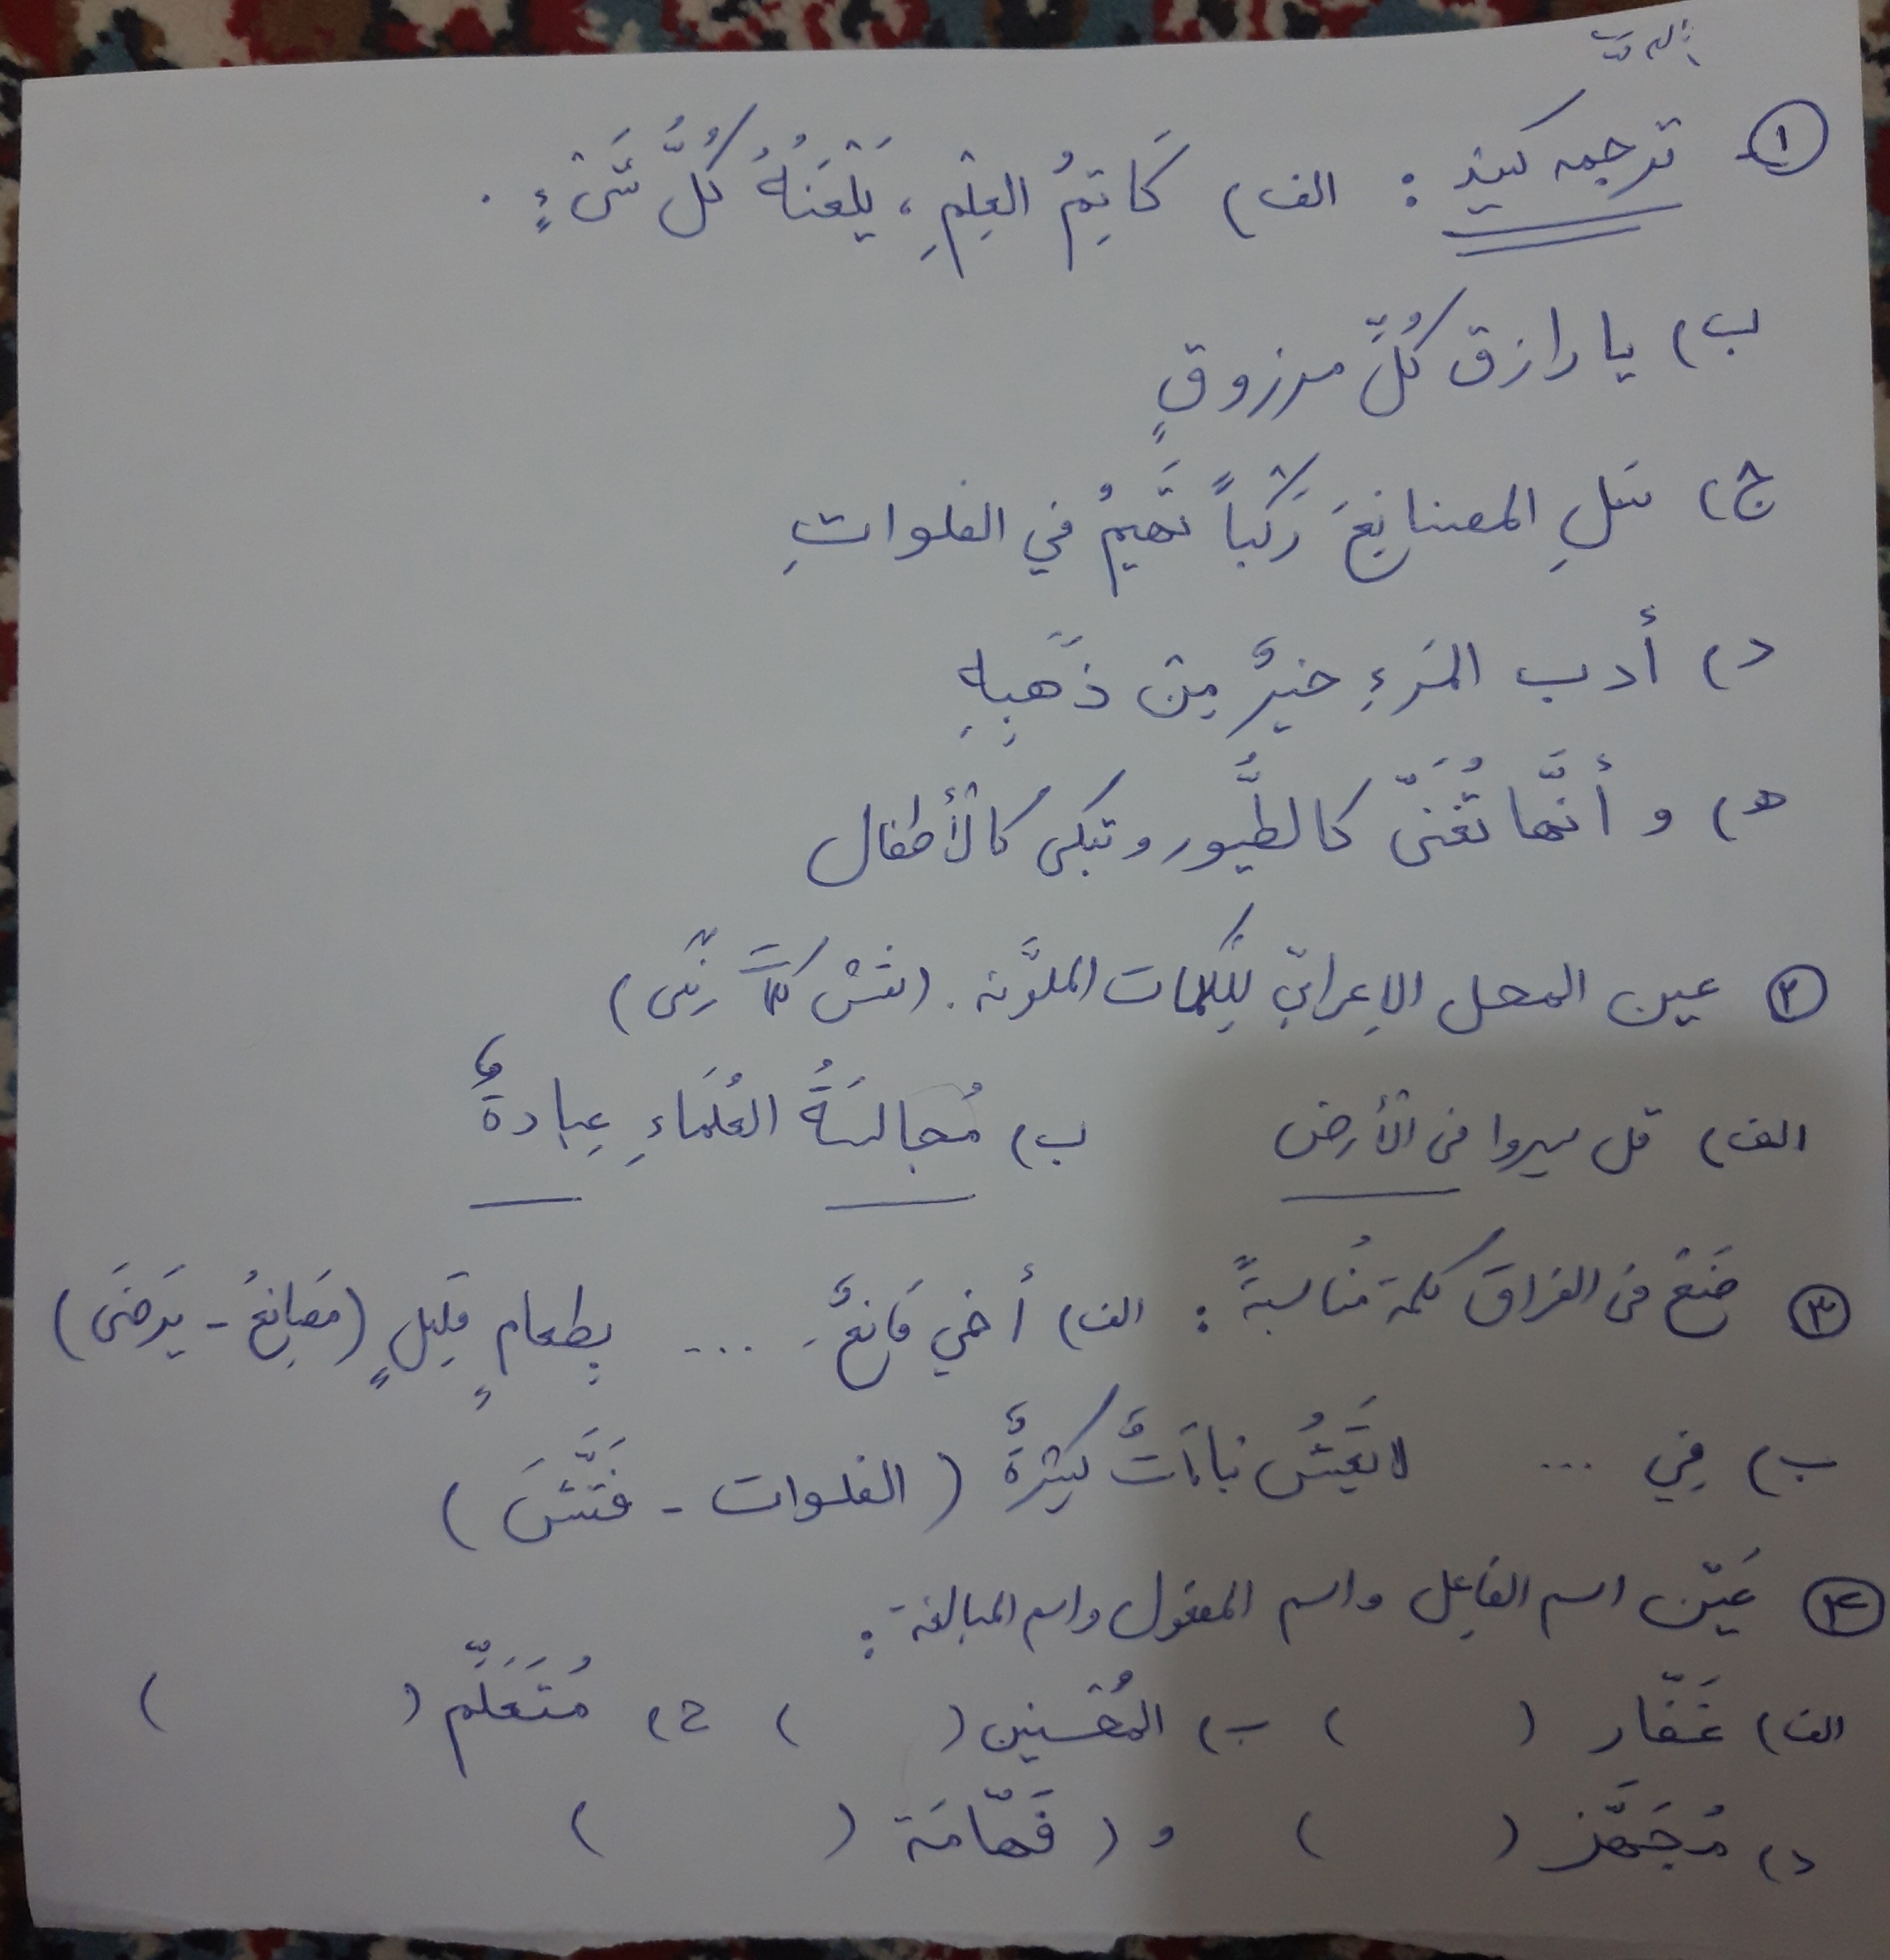 ① ترجمه کنید : الف) كَاتِمُ العِلْمِ ، يَلْعَنُهُ كُلُّ شَىْءٍ .
ب) يا رازق كُلِّ مرزوقٍ
ج) سَلِ المصانِعَ رَكْباً تَهيمُ في الفلواتِ
د) أدب المَرءِ خيرٌ مِن ذَهَبِهِ
ه) و أنَّها تُغَنّى كالطُّيور و تبكى كالْأطفال
② عين المحل الإعرابيّ لِلكلمات الملوَّنه . (نقش کلمات رنگی)
الف) قل سيروا فى الْأرض ب) مُجالسَةُ العُلَماءِ عِبادةٌ
③ ضَعْ فى الفراق كلمة مُناسبةً : الف) أخي قَانِعٌ ... بِطعامٍ قَلِيلٍ (مَصانِعُ - يَرضَى)
ب) فِي ... لا تَعيشُ نباتاتٌ كثيرةٌ ( الفلوات - فَتَّشَ )
④ عَيّن اسم الفاعِل و اسم المفعول و اسم المبالغة :
الف) غَفّار ( ) ب) المُحْسنين ( ) ج) مُتَعَلِّم ( )
د) مُجَهَّز ( ) و ) فَهّامَة ( )